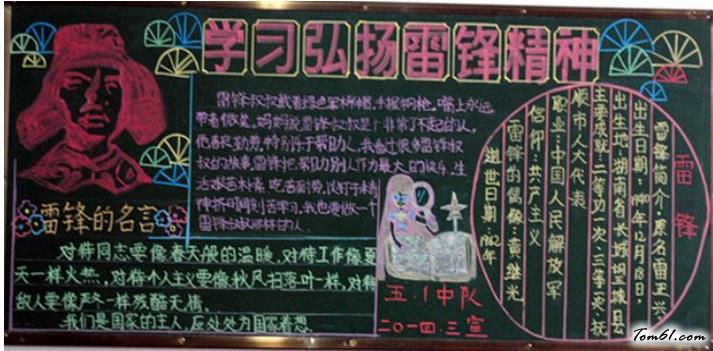 学习弘扬雷锋精神
雷锋叔叔戴着绿色军棉帽,手握钢枪,嘴上永远
带着微笑。妈妈说雷锋叔叔是个非常了不起的人,
他喜欢助人,特别乐于帮助人。我看过很多雷锋叔
叔的故事,雷锋把帮助别人作为最大的快乐,生
活艰苦朴素,吃苦耐劳,以钉子精
神挤时间刻苦学习。我也要做一个
雷锋叔叔那样的人。
雷锋的名言
对待同志要像春天般的温暖,对待工作像夏
天一样火热,对待个人主义要像秋风扫落叶一样,对待
敌人要像严冬一样残酷无情。
我们是国家的主人,应处处为国家着想。
五.1中队
二〇一四.三宣
雷锋
雷锋简介:原名雷正兴
出生日期:1940年12月18日,
出生地:湖南省长城
主要成就:二等功一次,三等二次,抚
顺市人大代表
职业:中国人民解放军
信仰:共产主义
雷锋的偶像:黄继光
逝世日期:1962年
Tom61.com